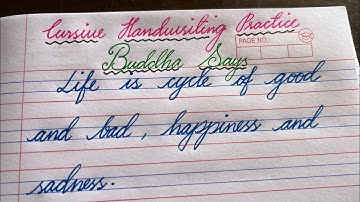 Cursive Handwriting Practice
PAGE NO.:
Buddha Says
Life is cycle of good
and bad, happiness and
sadness.